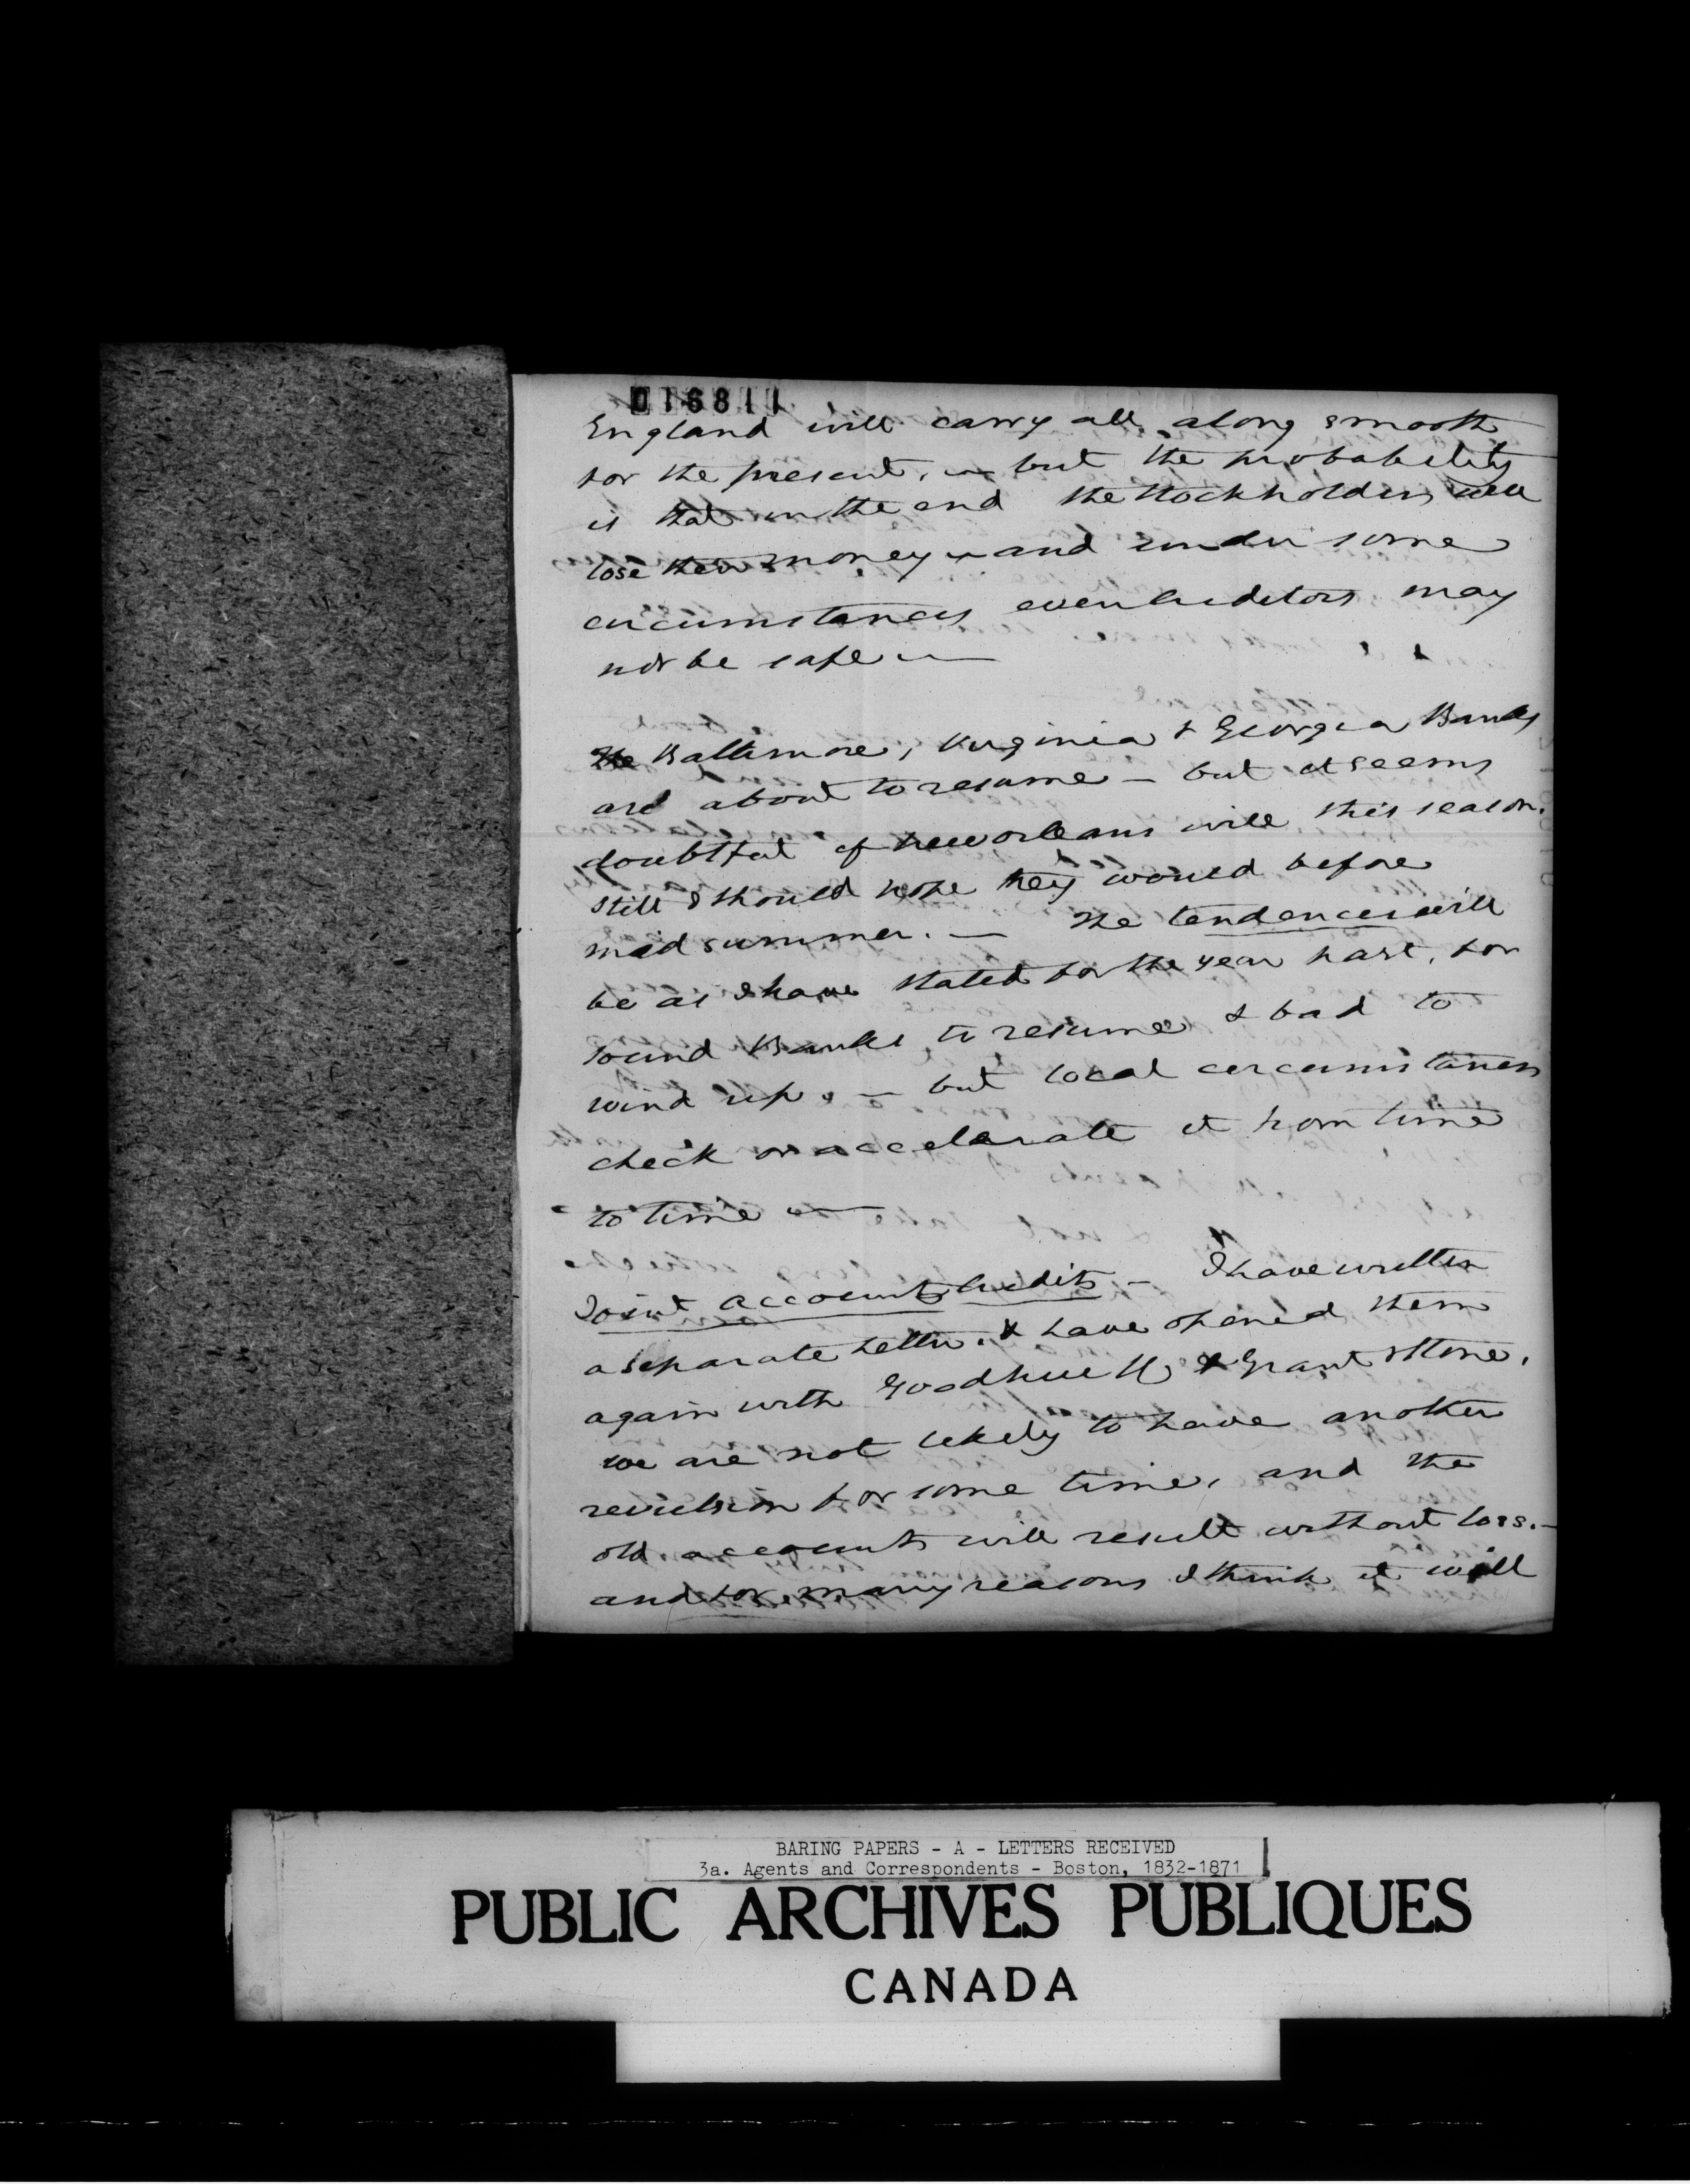 016811
England will carry all along smooth
for the present. — but the probability
is that in the end the Stockholders will
lose their money — and under some
circumstances even creditors may
not be safe —
The Baltimore, Virginia & Georgia Banks
are about to resume — but it seems
doubtful if New Orleans will this season.
Still I should hope they would before
mid summer. — The tendencies will
be as I have stated for the year past, for
sound Banks to resume & bad to
wind up. — but local circumstances
check or accelerate it from time
to time —
Joint account credits — I have written
a separate letter. & have opened them
again with Goodhue & Co & Grant & Stone.
we are not likely to have another
revulsion for some time, and the
old accounts will result without loss. —
and for many reasons I think it will
BARING PAPERS - A - LETTERS RECEIVED
3a. Agents and Correspondents - Boston, 1832-1871
PUBLIC ARCHIVES PUBLIQUES
CANADA